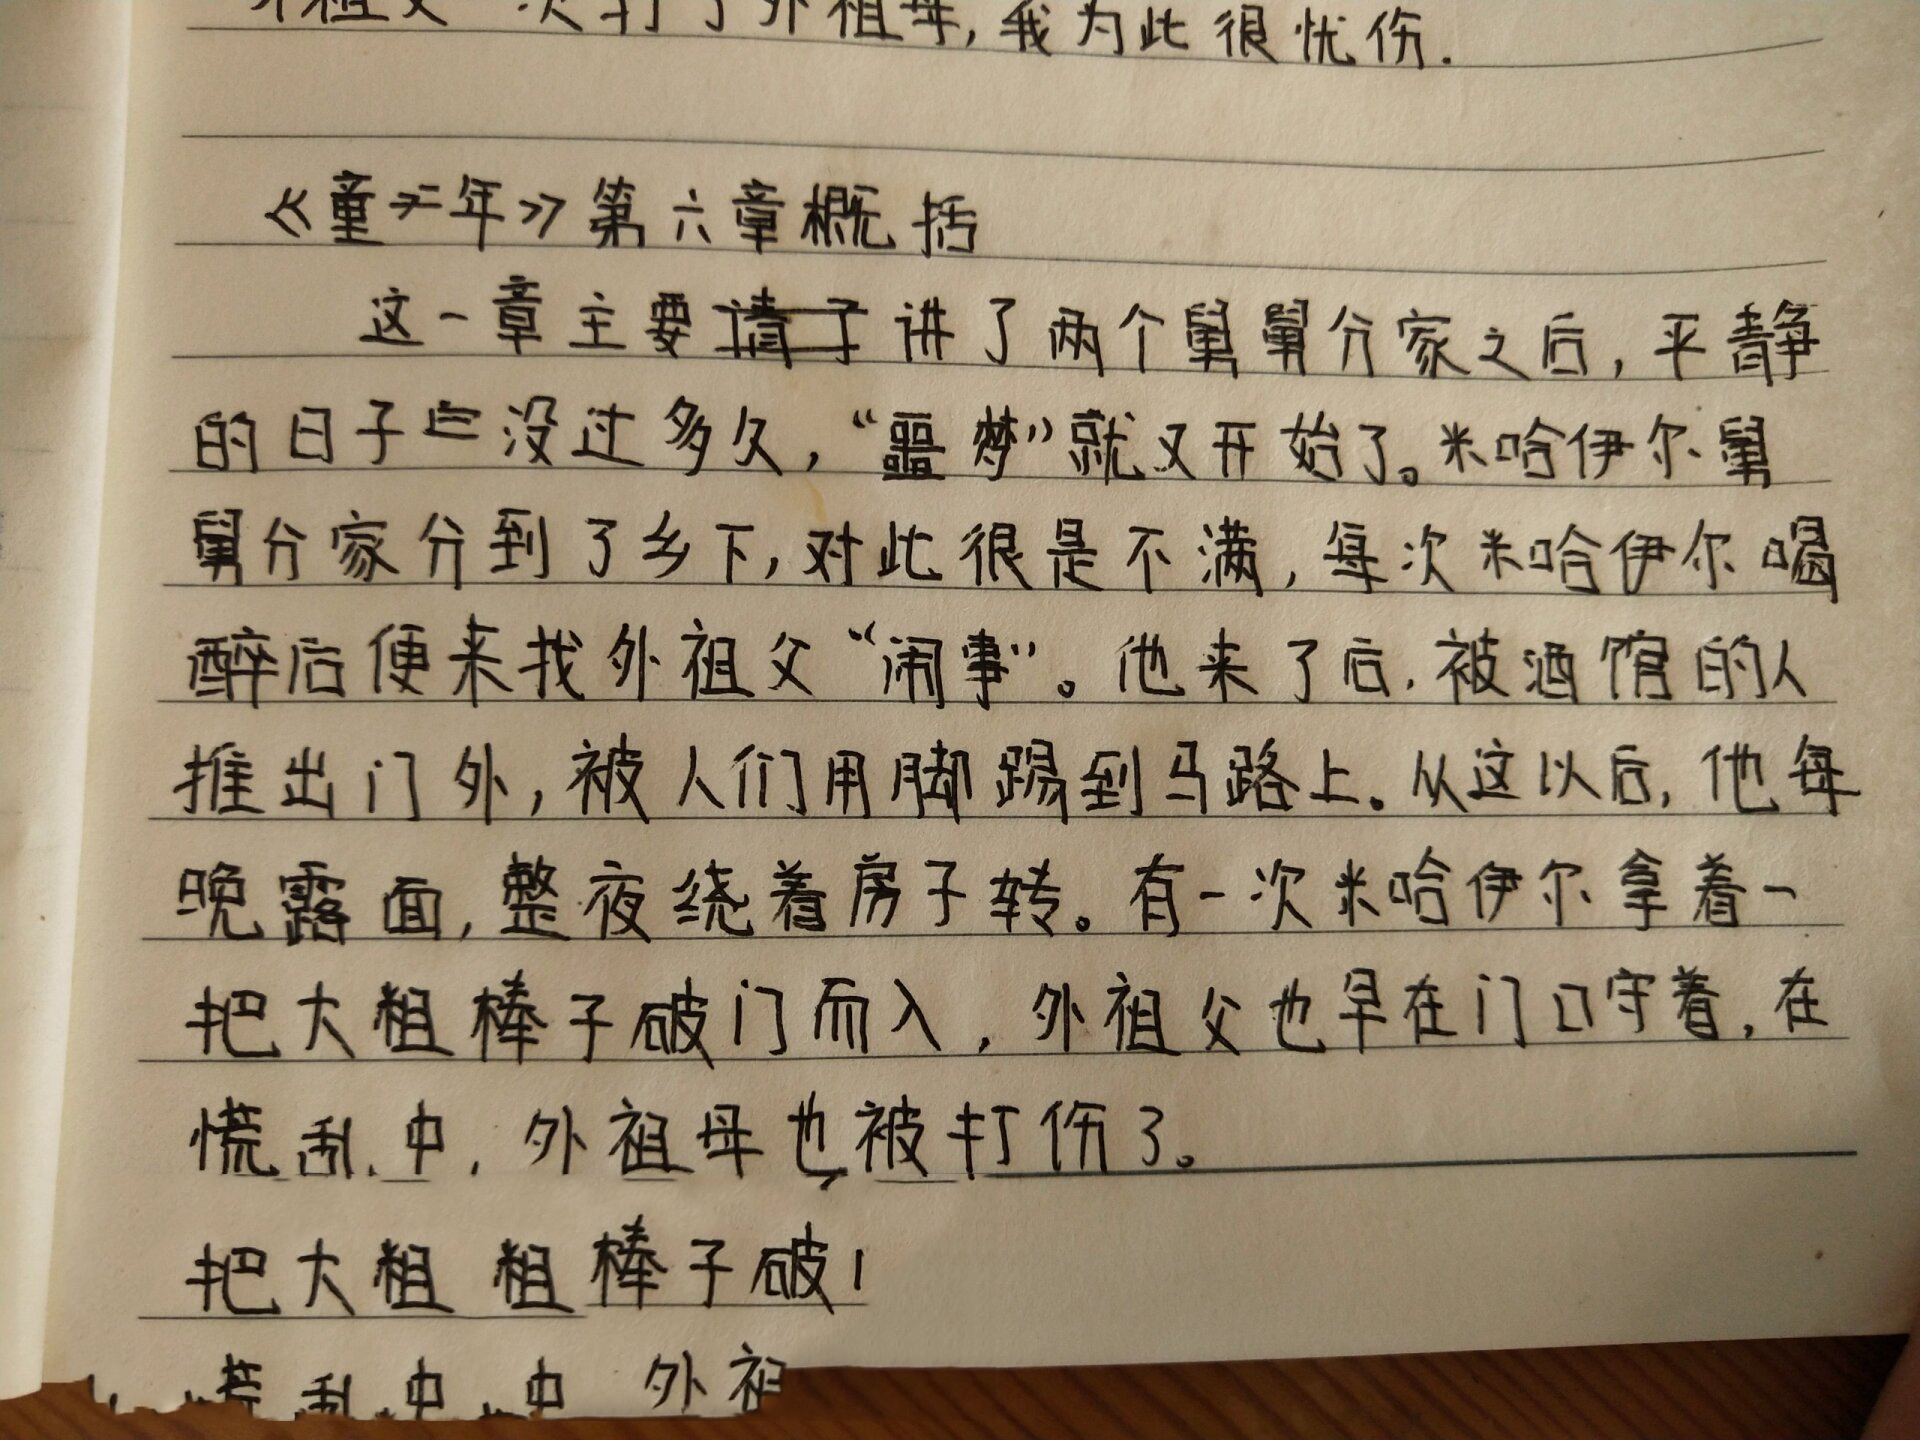 外祖父一次打了外祖母,我为此很忧伤.
《童年》第六章概括
这一章主要讲了两个舅舅分家之后,平静
的日子没过多久,“噩梦”就又开始了。米哈伊尔舅
舅分家分到了乡下,对此很是不满,每次米哈伊尔喝
醉后便来找外祖父“闹事”。他来了后,被酒馆的人
推出门外,被人们用脚踢到马路上。从这以后,他每
晚露面,整夜绕着房子转。有一次米哈伊尔拿着一
把大粗棒子破门而入,外祖父也早在门口守着,在
慌乱中,外祖母也被打伤了。
把大粗粗棒子破
慌乱中中 外祖